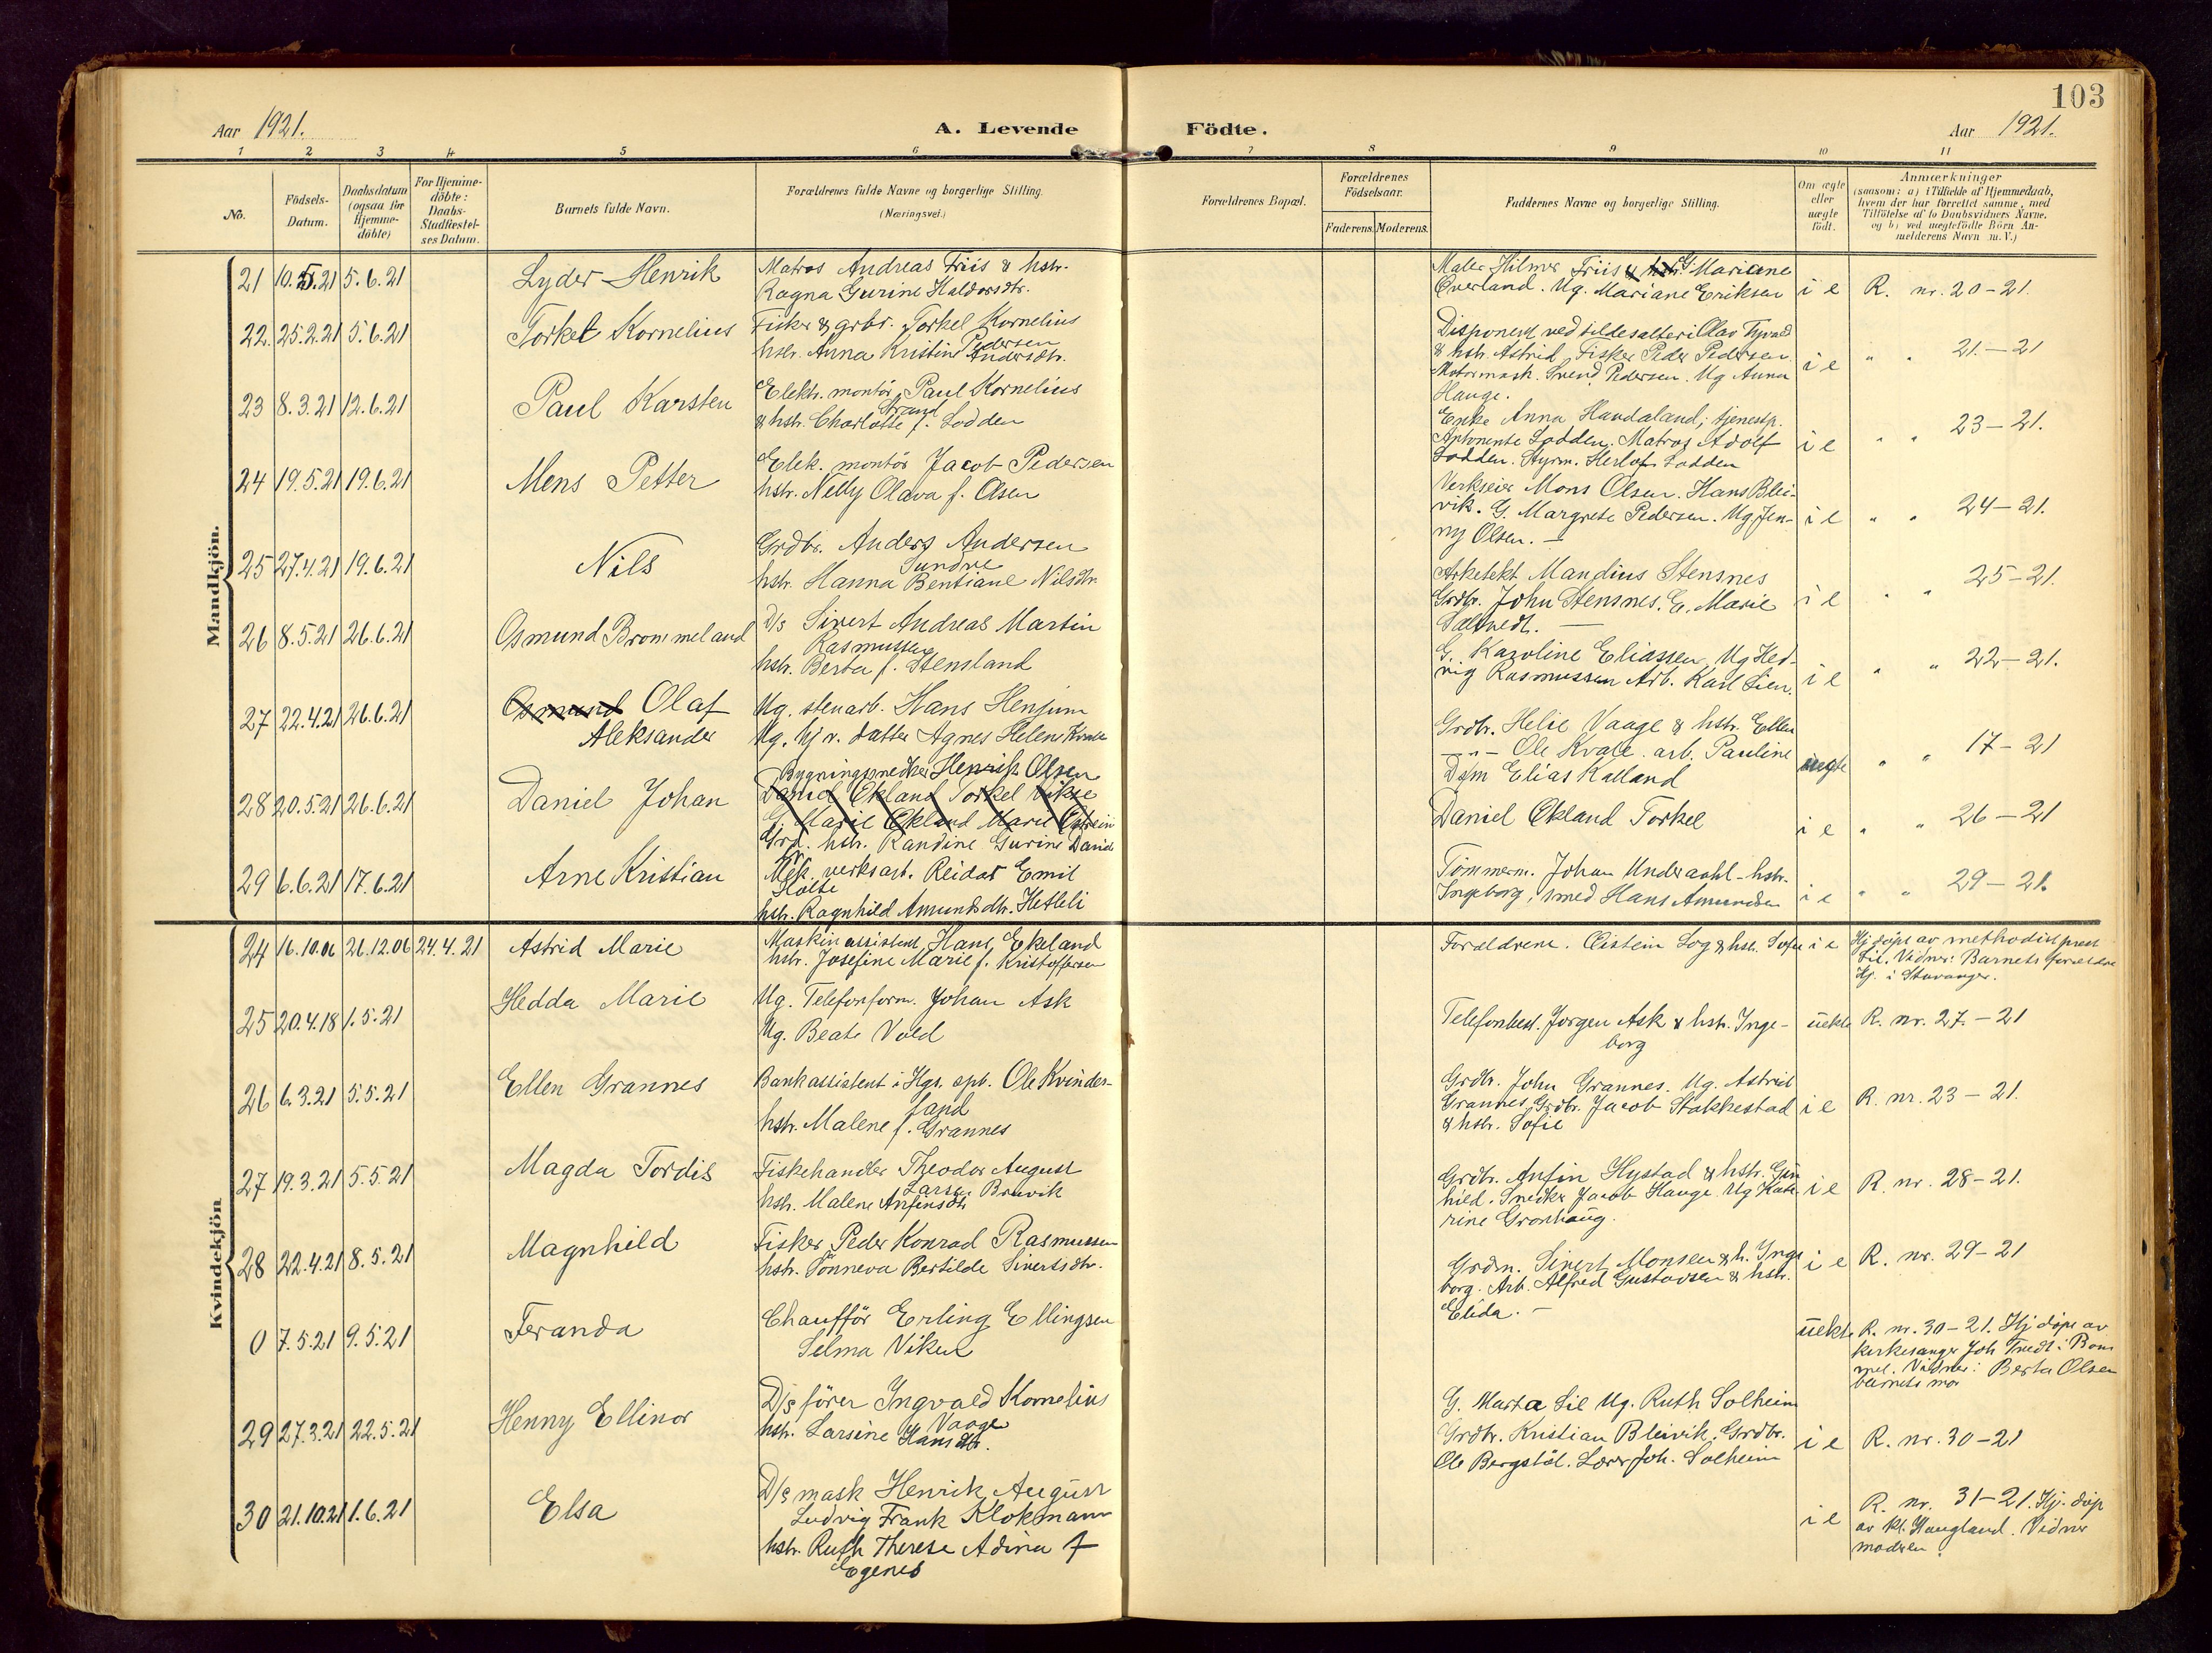 103
Aar 1921.
A. Levende Födte.
Aar 1921.
1 2 3 4 5 6 7 8 9 10 11
No.
Födsels-Datum.
Daabsdatum (ogsaa for Hjemme-döbte)
For Hjemme-döbte: Daabs-Stadfæstel-ses Datum.
Barnets fulde Navn.
Forældrenes fulde Navne og borgerlige Stilling.
(Næringsvei.)
Forældrenes Bopæl.
Forældrenes Födselsaar.
Faderens. Moderens.
Faddernes Navne og borgerlige Stilling.
Om ægte eller uægte födt.
Anmærkninger
(saasom: a) i Tilfælde af Hjemmedaab,
hvem der har forrettet samme, med
Tilföielse af to Daabsvidners Navne,
og b) ved uægtefödte Börn An-
melderens Navn m. V.)
Mandkjön.
21 10.5.21 5.6.21 Lyder Henrik
Matros Andreas Friis & hstr.
Ragna Gurine Haldorsdtr.
Maler Hilmer Friis & G. Mariane
Overland. Ug. Mariane Eriksen
i e R. nr. 20-21.
22. 25.2.21 5.6.21 Torkel Kornelius
Fisker & grbr. Torkel Kornelius
Pedersen
hstr. Anna Kristine Andersdtr.
Disponent ved sildesalteri Olav
& hstr. Astrid Fisker Peder Pedersen
Motormask. Svend Pedersen. Ug Anna
Hauge.
i e " " 21.-21
23 8.3.21 12.6.21 Paul Karsten
Elektr. montör Paul Kornelius
Strand
& hstr. Charlotte f. Lodden
Enke Anna Handaland; tjenestp.
Lodden. Matros Adolf
Lodden. Styrm. Herlof Lodden
i e " " 23-21.
24 19.5.21 19.6.21 Mons Petter
Elek. montör Jacob Pedersen
hstr. Nelly Olava f. Olsen
Verkseier Mons Olsen. Hans Blei-
vik. G. Margrete Pedersen. Ug Jen-
ny Olsen. -
i e " " 24-21.
25 27.4.21 19.6.21 Nils
Grdbr. Anders Andersen
Sundve
hstr. Hanna Bentiane Nilsdtr.
Arketekt Mandius Stensnes
Grdbr. John Stensnes. G. Marie
i e " " 25-21.
26 8.5.21 26.6.21 Osmund Brommeland
D/s Sivert Andreas Martin
Rasmussen
hstr. Berta f. Stensland
G. Karoline Eliassen, Ug Hed-
vig Rasmussen Arb. Karl Lien.
i e " " 22-21.
27 22.4.21 26.6.21 Osmund Olaf
Aleksander
Ug. stenarb. Hans Henjum
Ug. hjv. datter Agnes Helene Kvale
Grdbr. Helie Vaage & hstr. Ellen
-"- Ole Kvale. arb. Pauline
D/m Elias Kalland
uegte " " 17-21
28 20.5.21 26.6.21 Daniel Johan
Bygningssnedker Henrik Olsen
Daniel Økland Torkel Vikse
G. Marie Økland Marie
Grd. hstr. Randine Gurine
Daniel Økland Torkel
i e " " 26-21
29 6.6.21 17.6.21 Arne Kristian
Mek. verksarb. Reidar Emil
Holte
hstr. Ragnhild Amundsdtr. Hetleli
Tömmerm. Johan Underdahl - hstr.
Ingeborg, smed Hans Amundsen
i e " " 29-21.
Kvindekjön
24 16.10.06 26.12.06 24.4.21 Astrid Marie
Maskinassistent Hans Ekeland
hstr. Josefine Marie f. Kristoffersen
Forældrene. Øistein Log & hstr. Sofie
i e
Hj døpt av methodistprest
Lie. Vidner: Barnets forældre
Hj. i Stavanger.
25 20.4.18 1.5.21 Hedda Marie
Ug. Telefonform. Johan Ask
Ug. Beate Vold
Telefonbest. Jørgen Ask & hstr. Inge-
borg
uekte R. nr. 27.-21
26 6.3.21 5.5.21 Ellen Grannes
Bankassistent i Hgs. spb. Ole Kvinnes-
land
hstr. Malene f. Grannes
Grdbr. John Grannes. Ug. Astrid
Grannes, Grdbr. Jacob Stakkestad
& hstr. Sofie
i e R. nr. 23-21.
27 19.3.21 5.5.21 Magda Tordis
Fiskehandler Theodor August
Larsen Bruvik
hstr. Malene Anfinsdtr
Grdbr. Anfin Hystad & hstr. Gun
hild. Snedker Jacob Hauge. Ug Kate
rine Grønhaug.
i e R. nr. 28-21.
28 22.4.21 8.5.21 Magnhild
Fisker Peder Konrad Rasmussen
hstr. Sønneva Bertilde Sivertsdtr.
Grdm. Sivert Monsen & h. Inge
borg. Arb. Alfred Gustavsen & hstr.
Elida. -
i e R. nr. 29-21
0 7.5.21 9.5.21 Feranda
Chaufför Erling Ellingsen
Selma Viken
uekte R. nr. 30-21. Hj døpt av
kirkesanger Joh Tvedt i Bøm
mel. Vidner: Berta Olsen
barnets mor
29 27.3.21 22.5.21 Henny Ellinor
D/s fører Ingvald Kornelius
Vaage
hstr. Larsine Hansdtr.
G. Marta Lie Ug. Ruth Solheim
Grdbr. Kristian Bleivik. Grdbr.
Ole Bergstöl. Lærer Joh. Solheim
i e R. nr. 30-21
30 21.10.21 1.6.21 Elsa
D/s mask Henrik August
Ludvig Frank Klokmann
hstr. Ruth Therese Adina f
Egenes
i e
R. nr. 31-21. Hj. døp
av kl. Haugland. Vidner
moderen.